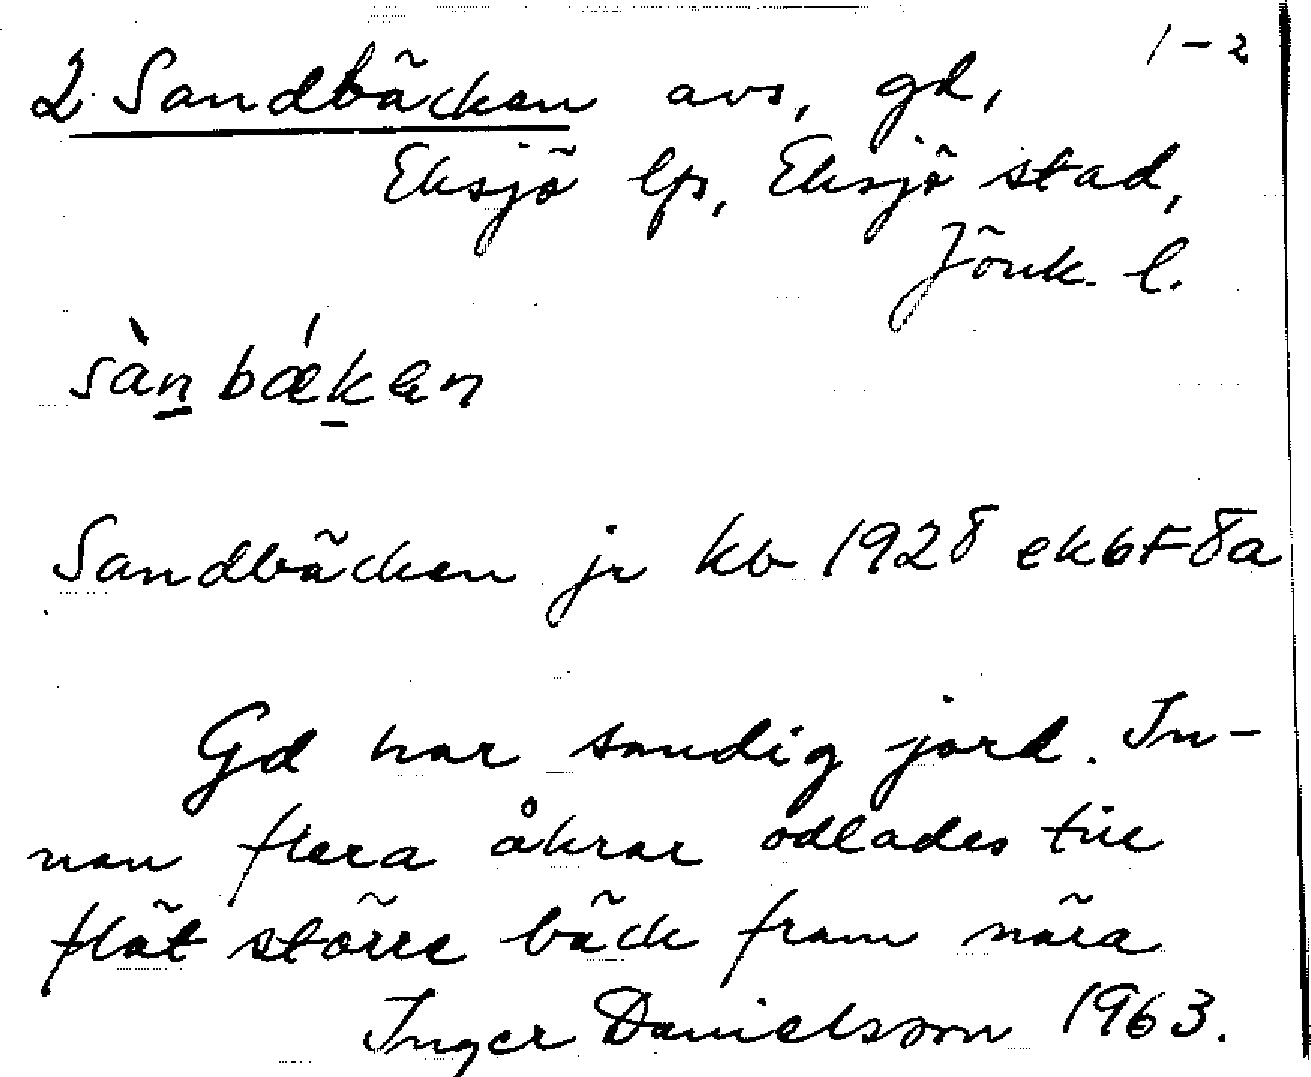 1-2
2 Sandbäcken avs, gd,
Eksjö lfs, Eksjö stad,
Jönk. l.
sàn bǽkɐn
Sandbäcken jr kb 1928 ekbF8a
Gd har sandig jord. In-
nan flera åkrar odlades till
flöt större bäck fram nära
Inger Danielsson 1963.